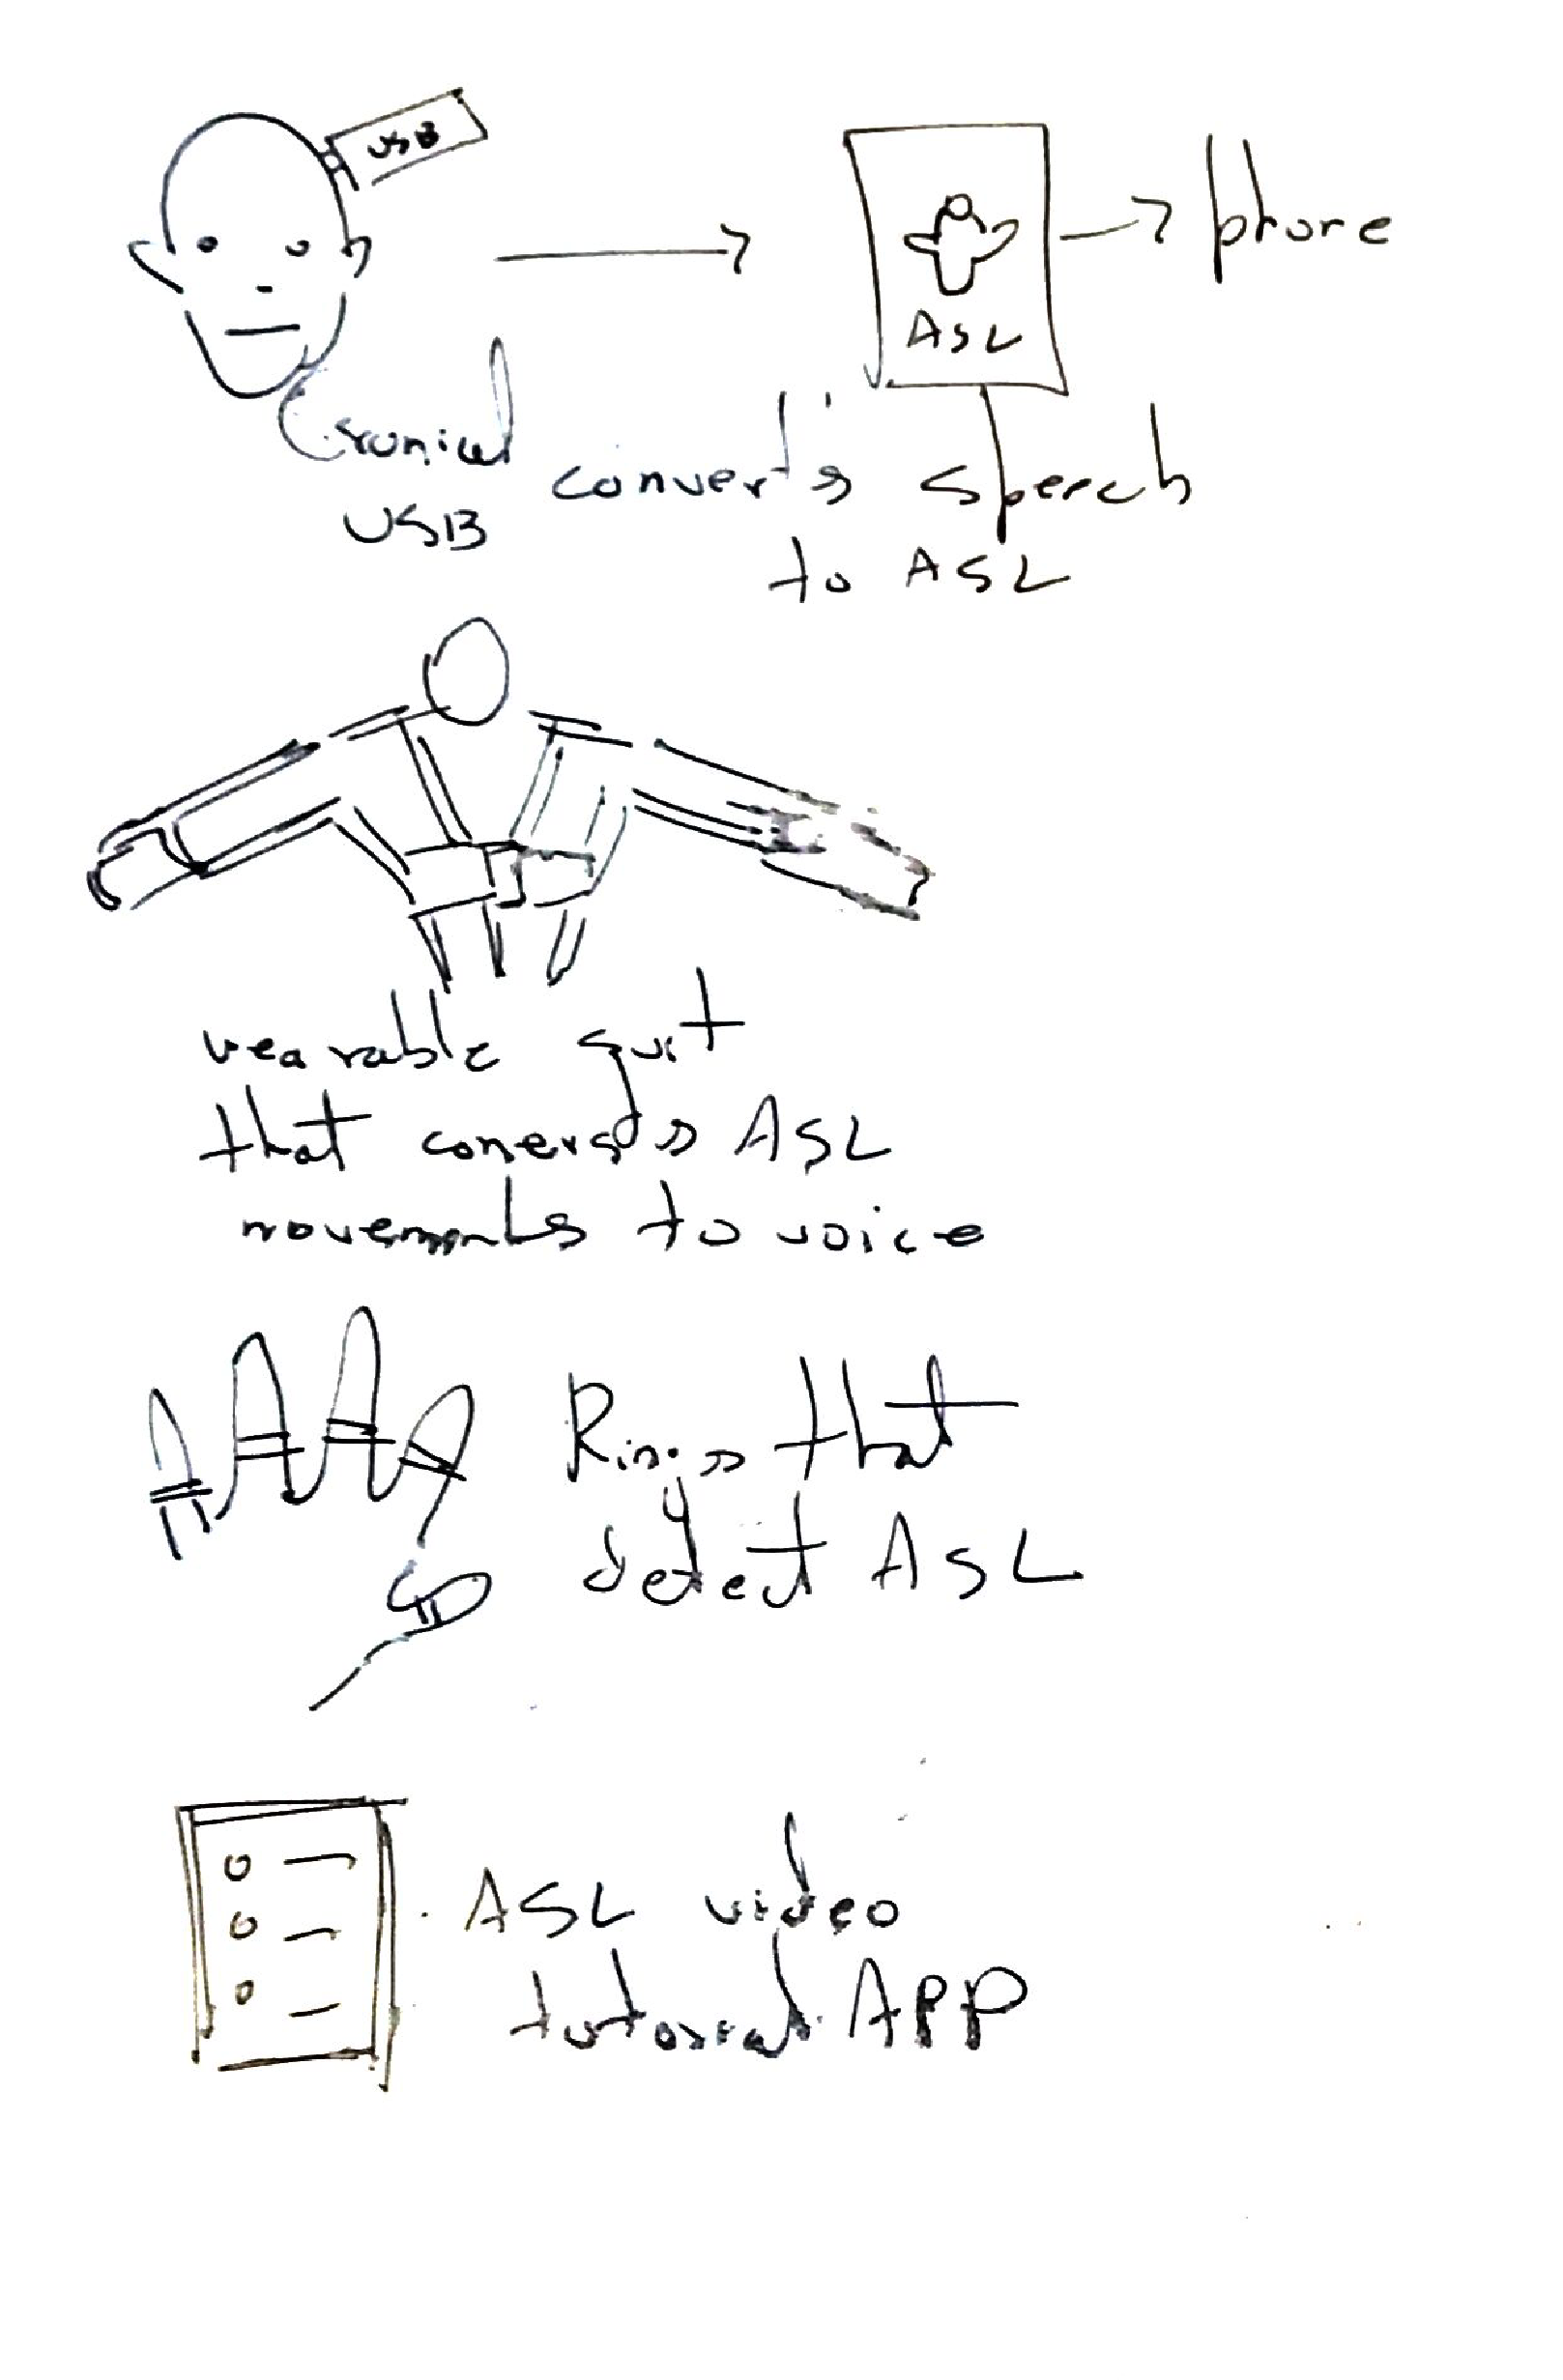 USB
phone
ASL
Cranial
converts speech
USB
to ASL
wearable suit
that conversts ASL
movements to voice
Rings that
detect ASL
ASL video
tutorial APP